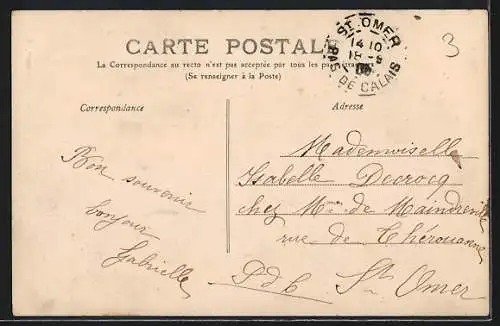 CARTE POSTALE
La Correspondance au recto n'est pas acceptée par tous les pays étrangers
(Se renseigner à la Poste)
ST OMER
14 10
18 -8
PAS DE CALAIS
3
Correspondance
Adresse
Bon souvenir
bonjour
Gabrielle
Mademoiselle
Isabelle Decrocq
chez Mme de Maindreville
rue de Thérouanne
PdC St Omer